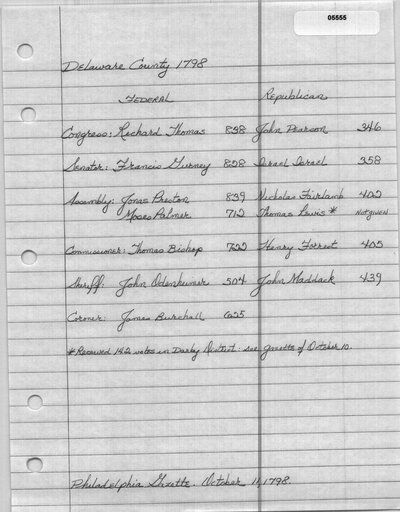 05555
Delaware County 1798
Federal Republican
Congress: Richard Thomas 838 John Pearson 346
Senator: Francis Gurney 828 Israel Israel 358
Assembly: Jonas Preston 839 Nicholas Fairlamb 402
Moses Palmer 712 Thomas Lewis * Not given
Commissioner: Thomas Bishop 722 Henry Forrest 405
Sheriff: John Odenheimer 504 John Maddack 439
Coroner: James Burchall 625
* Received 142 votes in Darby District: see Gazette of October 10.
Philadelphia Gazette. October 11, 1798.